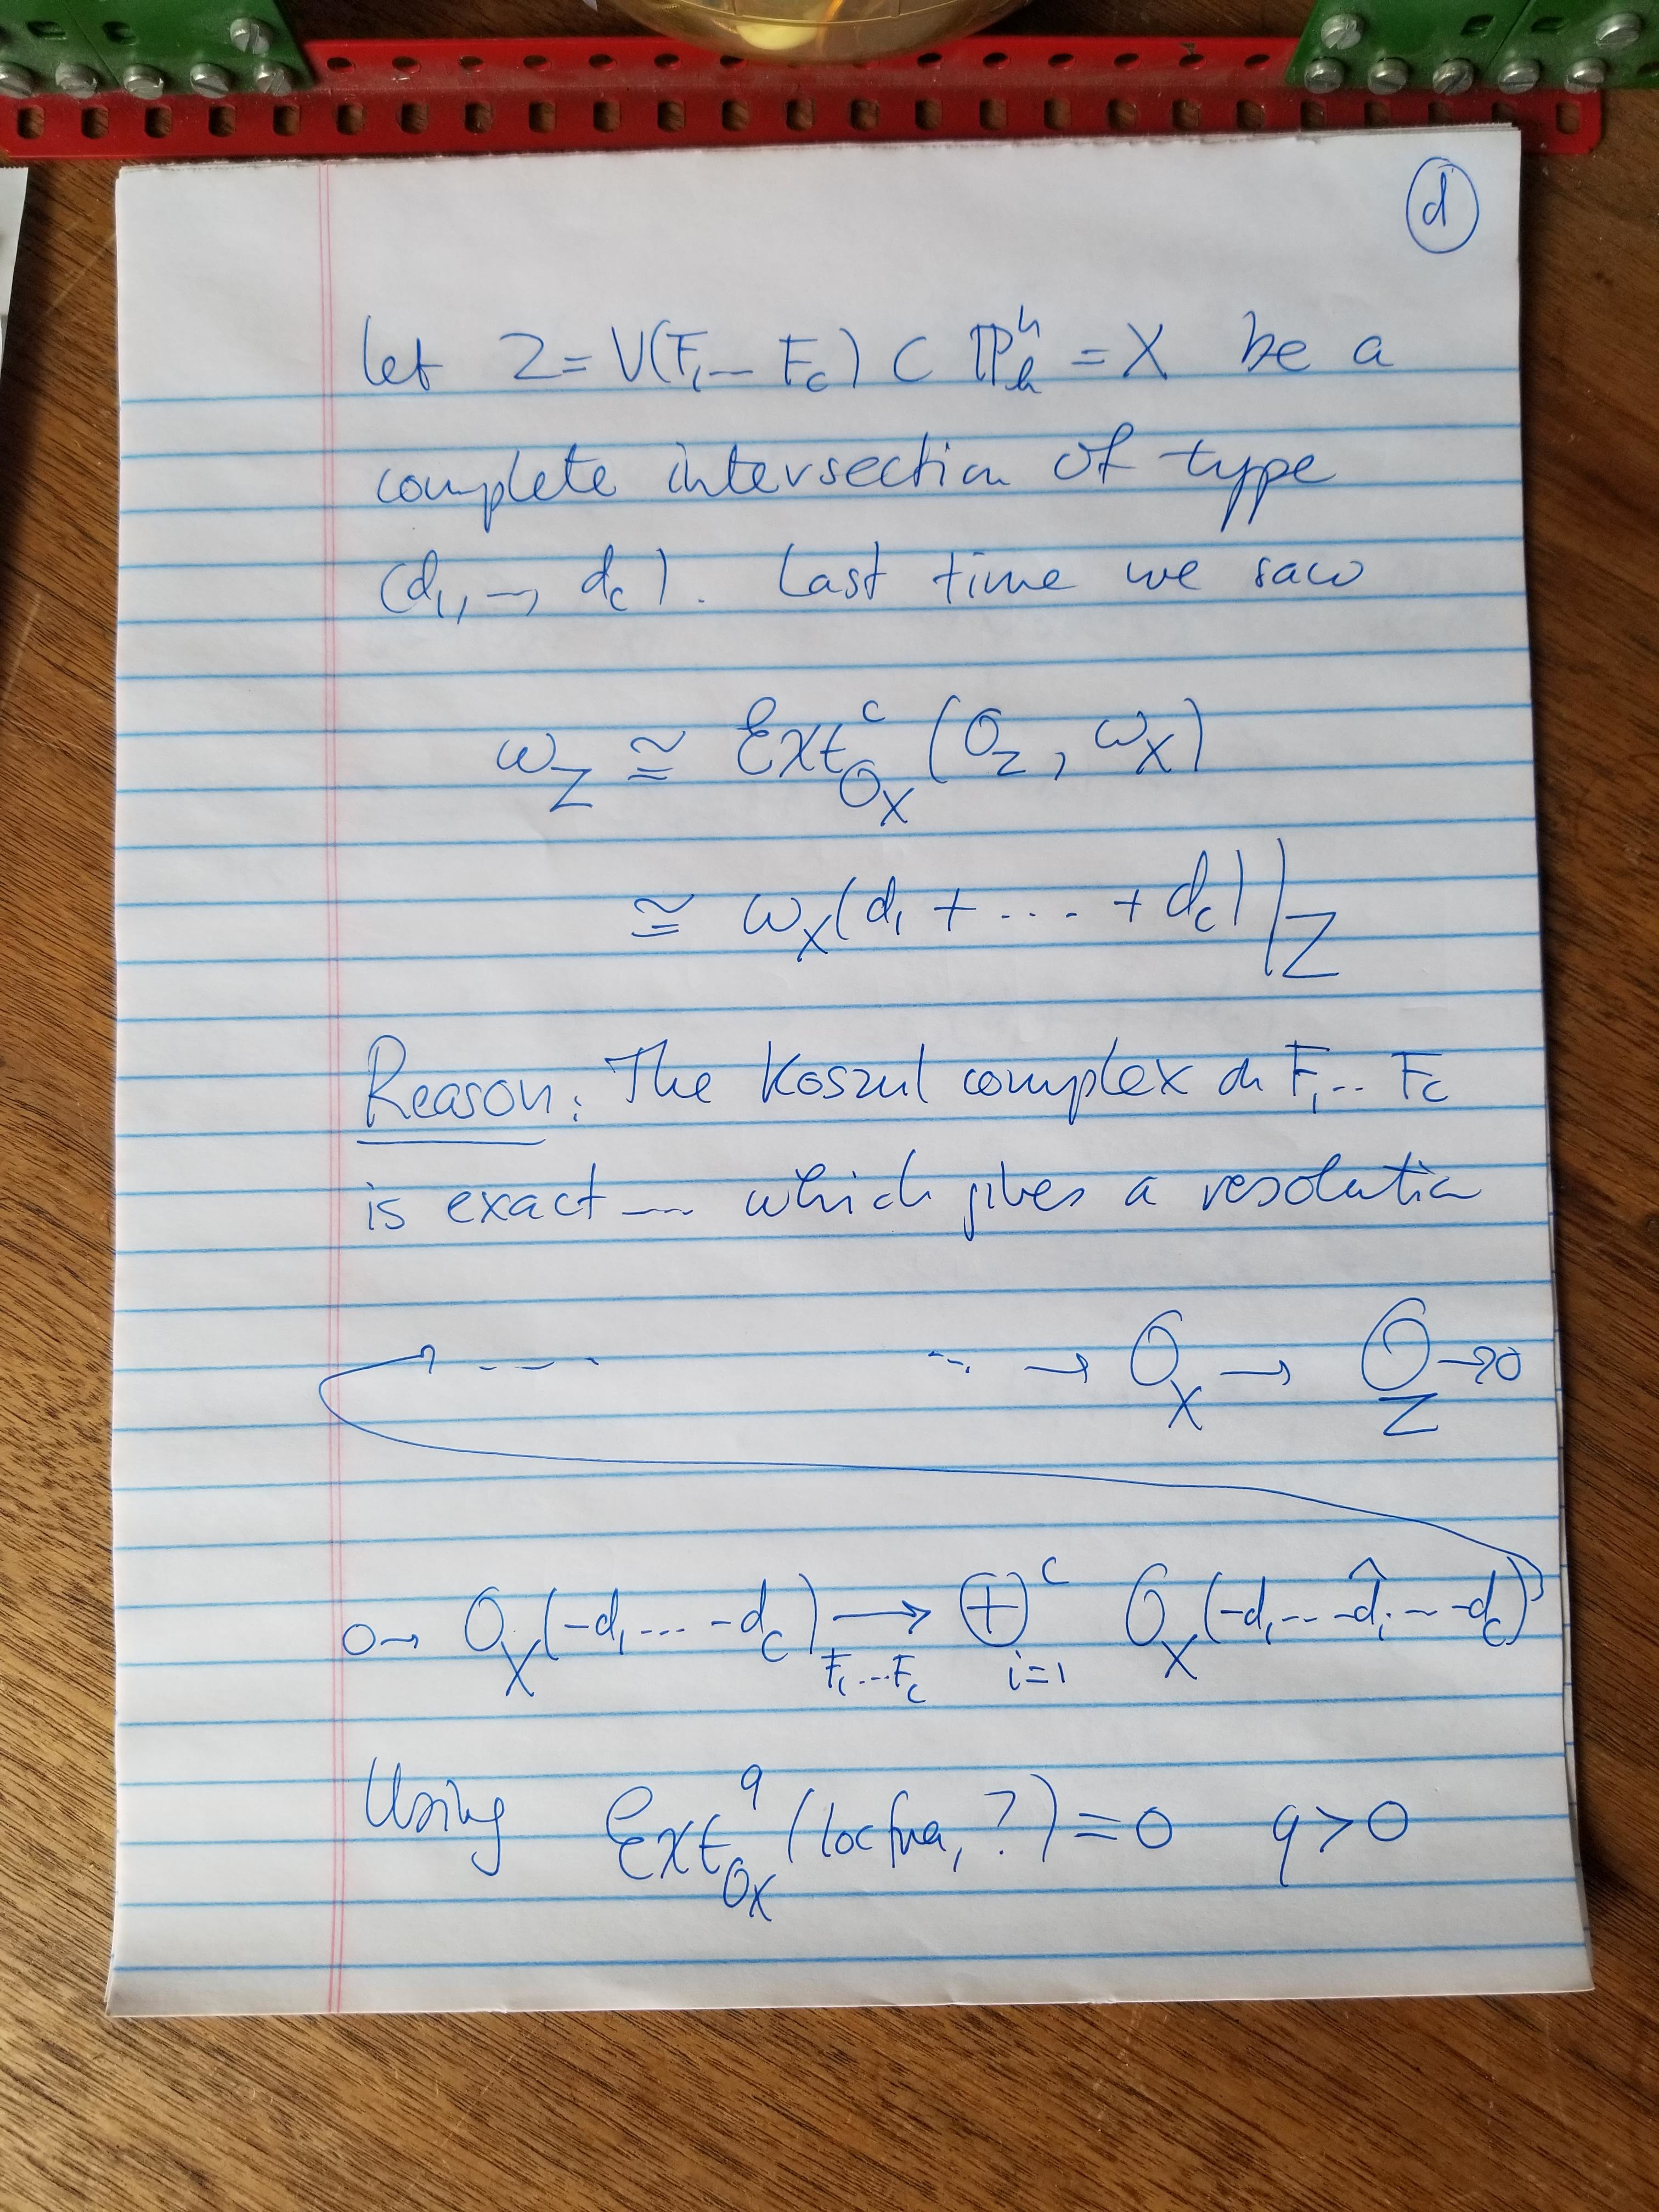 d
Let Z = V(F₁ -- F_c) ⊂ ℙⁿ_k = X be a
complete intersection of type
(d₁, --, d_c). Last time we saw
ω_Z ≅ Ext^c_{O_X} (O_Z, ω_X)
≅ ω_X(d₁ + .... + d_c)|_Z
Reason: The Koszul complex on F₁ .. F_c
is exact --- which gives a resolution
→ ---- --. → O_X → O_Z → 0
0 → O_X(-d₁ ... -d_c) ⟶_{F₁ ... F_c} ⊕_{i=1}^c O_X(-d₁ -- -d̂_i -- -d_c)
Using Ext^q_{O_X} (loc free, ?) = 0 q > 0